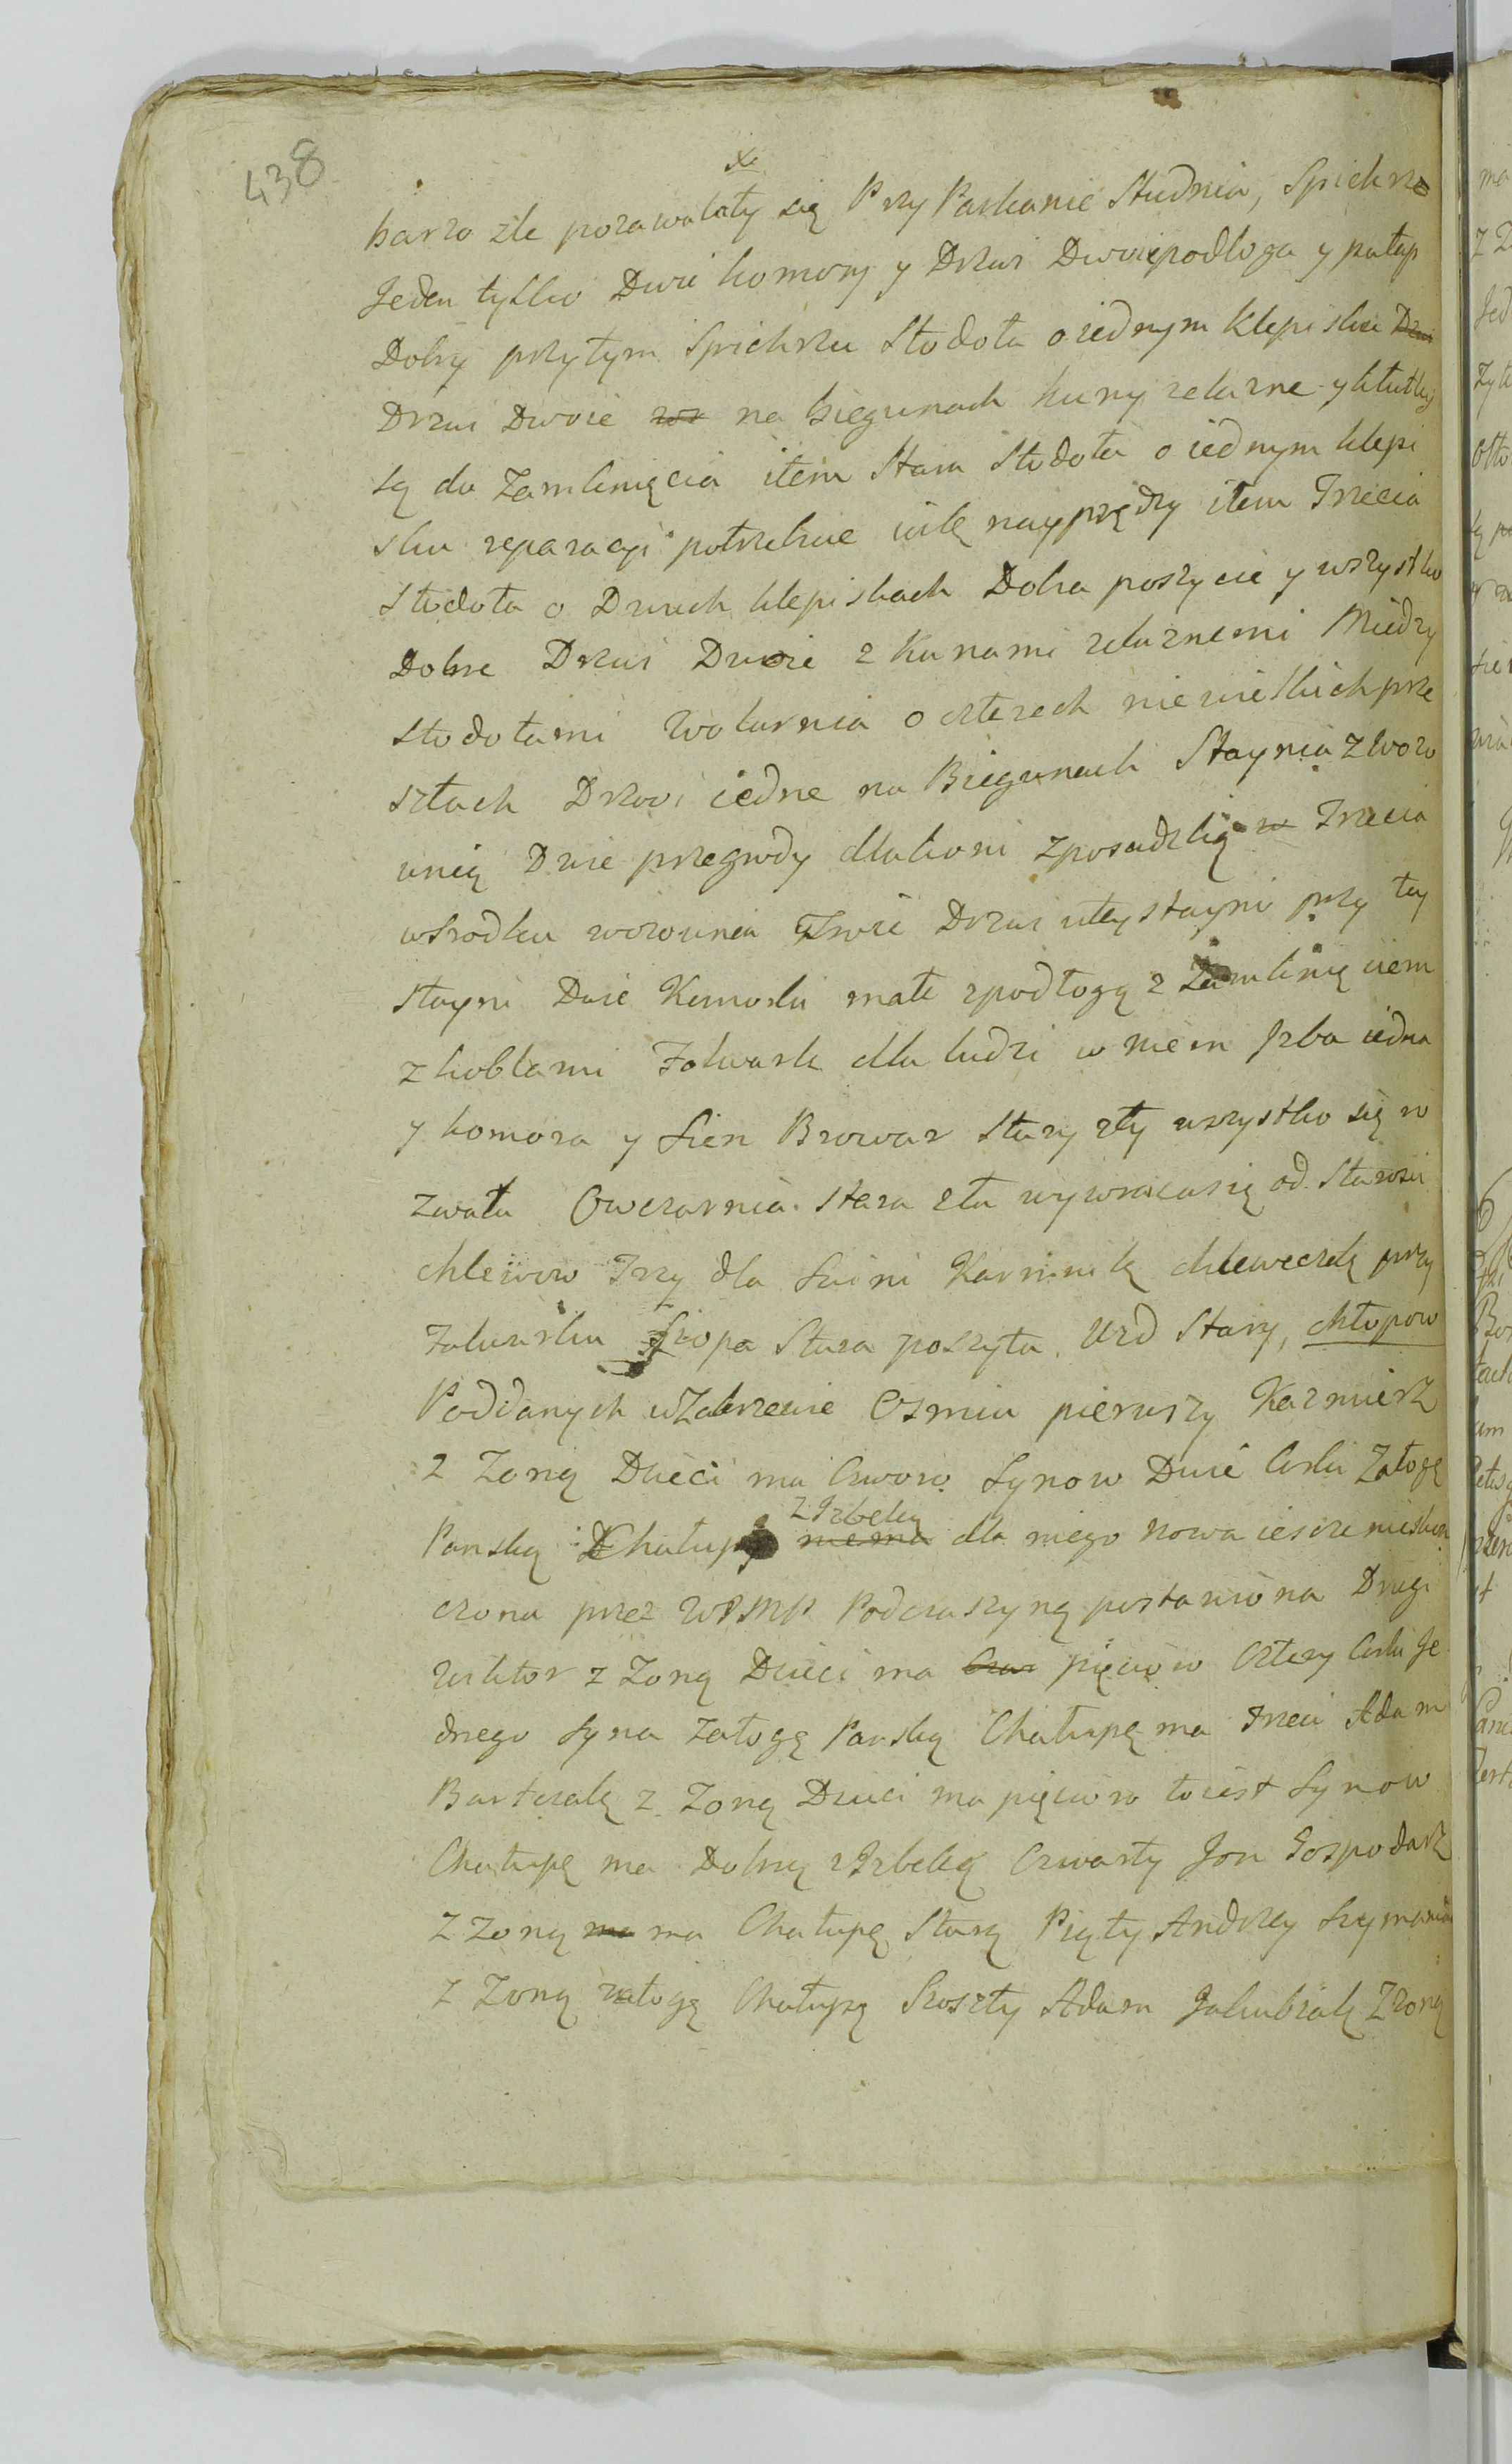 438
że
barzo zle pozawalały się Przy Parkanie Studnia, Spichrz
Jeden tylko Dwie komory y Drzwi Dwoie podłoga y pułap
Dobry przytym Spichrzu Stodoła o iednym klepisku
Drzwi Dwoie na biegunach kuny zelazne y kłutky
są do Zamknięcia item Stara Stodoła o iednym klepi
sku reparacyi potrzebuie iak nayprędzy item Trzecia
Stodoła o Dwuch klepiskach Dobra poszycie y wszystko
Dobre Drzwi Dwoie z Kunami zelaznemi Miedzy
Stodołami Wolarnia o czterech niewielkich prze
sztach Drzwi iedne na Biegunach Staynia z Wozo
wnią Dwie przegrody dla koni z posadzką Trzecia
wsrodku wozownia Troie Drzwi u tey stayni przy tey
Stayni Dwie Komorki małe z podłogą z Zamknięciem
z koblami Folwark dla ludzi w niem Izba iedna
y komora y Sien Browar Stary zły wszystko się w
zwała Owczarnia Stara zła wywraca się od Starosci
chlewow Trzy dla Swini Karmnik chleweczek przy
Folwarku Szopa Stara poszyta. Urd Stary, chłopow
Poddanych w Zabrzewie Osmiu pierwszy Kazmierz
z Zoną Dzieci ma Czworo Synow Dwie Corki Załogę
z Izbeką
Panską Chałupę niema dla niego nowa ieszcze nieskon
czona przez WJMP Podczaszynę postawiona Drugi
Wiktor z Zoną Dzieci ma pięcioro Cztery Corki Je
dnego Syna Załogę Panską Chałupę ma Trzeci Adam
Bartczak z Zoną Dzieci ma pięcioro to iest Synow
Chałupę ma Dobrą z Izbeką Czwarty Jon Gospodarz
z Zoną ma Chałupę Starą Piąty Andrzey Szymaniak
z Zoną załogę Chałupę Szoszty Adam Jakubiak Z zoną